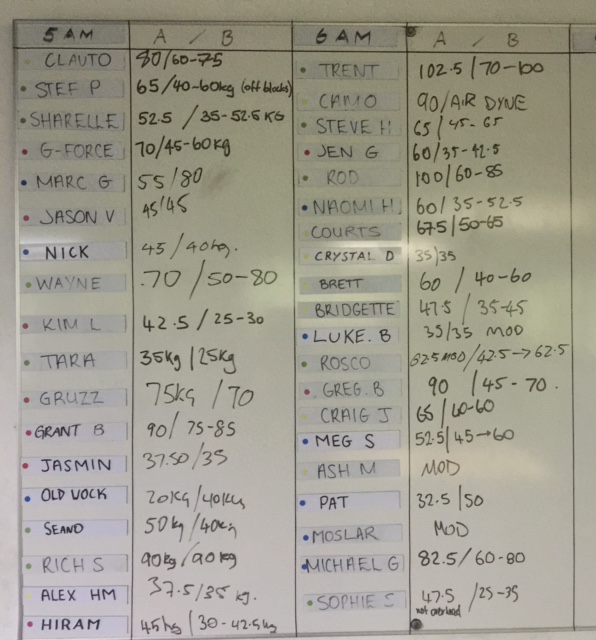 5 AM A / B
CLAUTO 80/60-75
STEF P 65/40-60kg (off blocks)
SHARELLE 52.5 / 35-52.5 KG
G-FORCE 70/45-60kg
MARC G 55/80
JASON V 45/45
NICK 45 / 40kg.
WAYNE 70 / 50-80
KIM L 42.5 / 25-30
TARA 35kg / 25kg
GRUZZ 75KG / 70
GRANT B 90/ 75-85
JASMIN 37.50 / 35
OLD UOCK 20KG / 40KG
SEANO 50kg / 40kg
RICH S 90kg / 90kg
ALEX HM 37.5 / 35 kg.
HIRAM 45kg / 30-42.5kg
6 AM A / B
TRENT 102.5 / 70-100
CAMO 90/AIR DYNE
STEVE H 65 / 45-65
JEN G 60/35-42.5
ROD 100/60-85
NAOMI H 60 / 35-52.5
COURTS 67.5 / 50-65
CRYSTAL D 35/35
BRETT 60 / 40-60
BRIDGETTE 47.5 / 35-45
LUKE. B 35/35 MOD
ROSCO 62.5 MOD / 42.5→62.5
GREG. B 90 / 45-70.
CRAIG J 65 / 60-60
MEG S 52.5 / 45→60
ASH M MOD
PAT 32.5 / 50
MOSLAR MOD
MICHAEL G 82.5 / 60-80
SOPHIE S 47.5 / 25-35
not overload